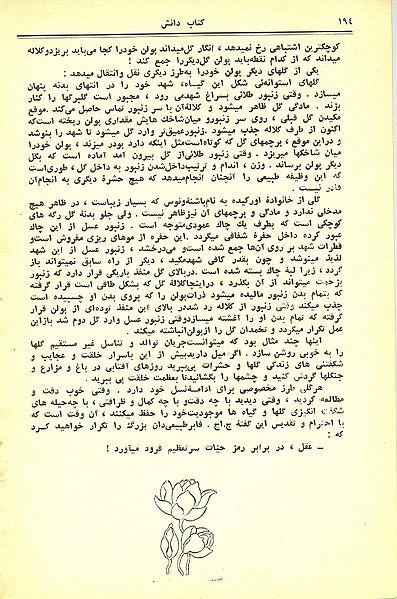 ۱۹٤
کتاب دانش
کوچکترین اشتباهی رخ نمیدهد ، انگار گل‌میداند پولن خودرا کجا می‌باید بریزدوکلاله
میداند که از کدام نقطه‌باید پولن گل‌دیگررا جمع کند !
یکی از گلهای دیگر پولن خودرا به‌طرز دیگری نقل وانتقال میدهد :
گلهای استوانه‌ئی شکل این گیـاه، شهد خود را در انتهای بدنه پنهان
میسازد . وقتی زنبور طلائی بسراغ شهدمی رود ، مجبور است گلبرگها را کنار
بزند . مادگی گل ظاهر میشود و کلاله‌آن با سر زنبور تماس حاصل می‌کند.موقع
مکیدن گل قبلی ، روی سر زنبورو میان‌شاخك هایش مقداری پولن ریخته است‌که
اکنون از طرف کلاله جذب میشود .زنبورعمیق‌تر وارد گل میشود تا شهد را بنوشد
و دراین موقع ، پرچمهای گل که کوتاه‌است‌مثل اینکه دارد پودر میزند ، پولن خودرا
میان شاخکها میریزد . وقتی زنبور طلائی‌از گل بیرون آمد آماده است که بگل
دیگر پولن برساند . وزن ، اندام و ترتیب‌داخل‌شدن زنبور به داخل گل ، طوری‌است
که این وظیفه طبیعی را آنچنان انجام‌میدهد که هیچ حشرهٔ دیگری به انجام‌آن
قادر نیست .
گلی از خانوادهٔ اورکیده به نام‌پاشنهٔ‌ونوس که بسیار زیباست ، در ظاهر هیچ
مدخلی ندارد و مادگی و پرچمهای آن نیزظاهر نیست . ولی جلو بدنهٔ گل رگه های
کوچکی است که بطرف یك چاك عمودی‌متوجه است . زنبور عسل از این چاك
عبور کرده داخل حفرهٔ شفافی میگردد .این حفره از موهای ریزی مفروش است‌و
قطرات شهد بر روی آن‌ها جمع شده است‌و میدرخشد ، زنبور عسل از این شهد
لذیذ میتوشد و چون بقدر کافی شهدمکید ، دیگر از راه سابق نمیتواند باز
گردد ، زیرا لبهٔ چاك بسته شده است .دربالای گل منفذ باریکی قرار دارد که زنبور
بزحمت میتواند از آن بگذرد ، دراینجاکلالهٔ گل که بشکل طاقی است قرار گرفته
که بتمام بدن زنبور مالیده میشود ذرات‌پولن را که بروی بدن او چسبیده است
جذب میکند وقتی زنبور از کلاله رد شددر بالای این منفذ توده‌ای از پولن قرار
گرفته که تمام بدن او را آغشته میسازد‌وقتی زنبور عسل وارد گل دوم شد بازاین
عمل تکرار میگردد و تخمدان گل را ازپولن‌انباشته میکند .
اینها چند مثال بود که میتوانست‌جریان توالد و تناسل غیر مستقیم گلها
را به خوبی روشن سازد . اگر میل داریدبیش از این باسرار خلقت و عجایب و
شگفتی های زندگی گلها و حشرات پی‌ببرید روزهای آفتابی در باغ و مزارع و
جنگلها گردش کنید و چشمها را بگشائیدتا بعظمت خلقت پی ببرید .
هرگلی طرز مخصوصی برای ادامهٔ‌نسل خود دارد . وقتی خوب دقت و
مطالعه کردید ، وقتی دیدید با چه دقت‌و با چه کمال و ظرافتی ، با چه‌حیله های
شگفت انگیزی گلها و گیاه ها موجودیت‌خود را حفظ میکنند ، آن وقت است که
با احترام و تقدیس این گفتهٔ ج.اج . فابرطبیعی‌دان بزرگ را تکرار خواهید کرد
که :
ـ عقل ، در برابر رمز حیات سرتعظیم فرود میآورد !